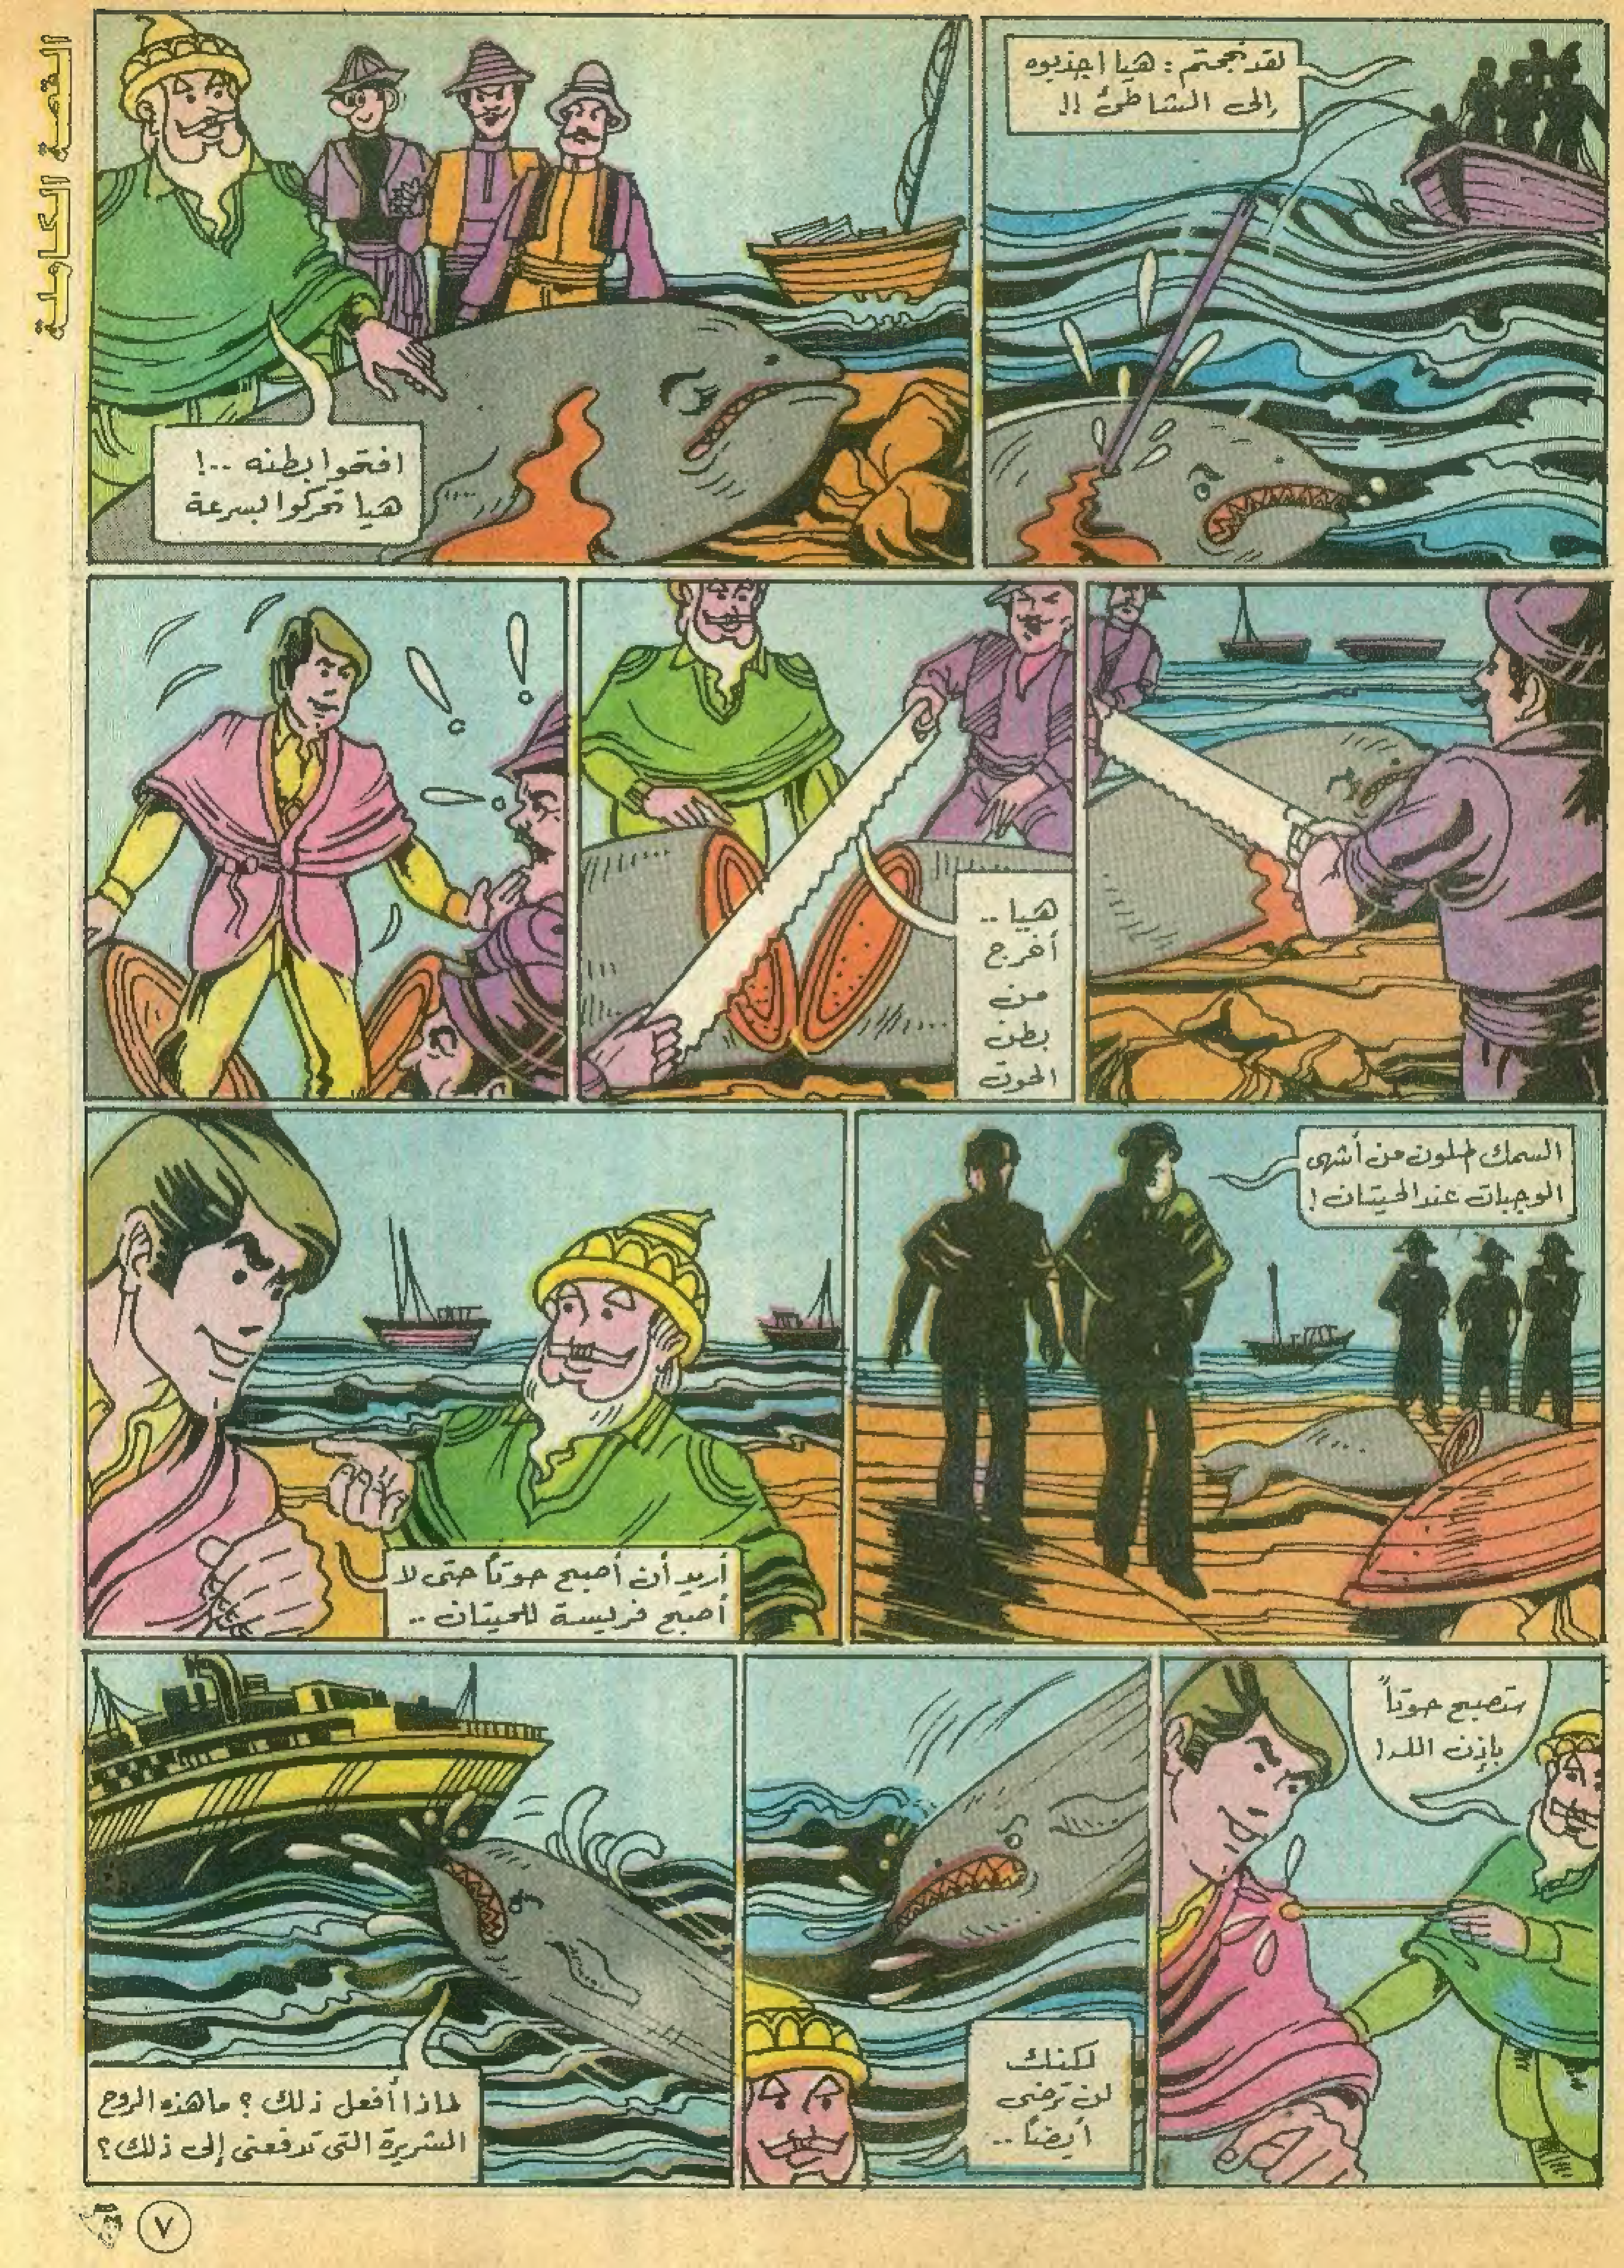 القصة الكاملة
لقد نجحتم : هيا اجذبوه
إلى الشاطئ !!
افتحوا بطنه ..!
هيا تحركوا بسرعة
هيا ..
أخرج
من
بطن
الحوت
السمك الملون من أشهى
الوجبات عند الحيتان !
أريد أن أصبح حوتاً حتى لا
أصبح فريسة للحيتان ..
ستصبح حوتاً
بإذن الله !
لكنك
لن ترضى
أيضاً ..
لماذا أفعل ذلك ؟ ما هذه الروح
الشريرة التى تدفعنى إلى ذلك ؟
٧